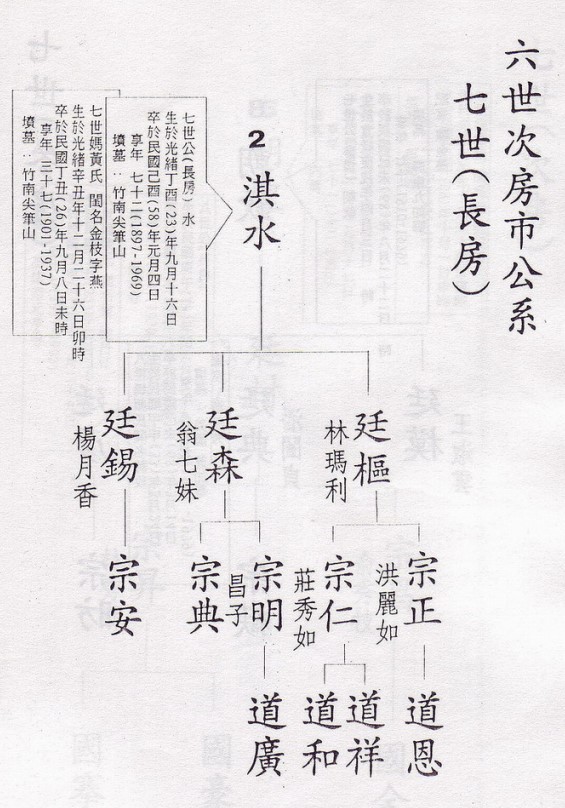 六世次房市公系
七世(長房)
2
淇水
七世公(長房) 水
生於光緒丁酉(23)年九月十六日
卒於民國己酉(58)年元月四日
享年 七十二(1897-1969)
墳墓：竹南尖筆山
七世媽黃氏 閨名金枝字燕
生於光緒辛丑年十二月二十六日卯時
卒於民國丁丑(26)年九月八日未時
享年 三十七(1901-1937)
墳墓：竹南尖筆山
廷樞
林瑪利
廷森
翁七妹
廷錫
楊月香
宗正
洪麗如
宗仁
莊秀如
宗明
昌子
宗典
宗安
道恩
道祥
道和
道廣